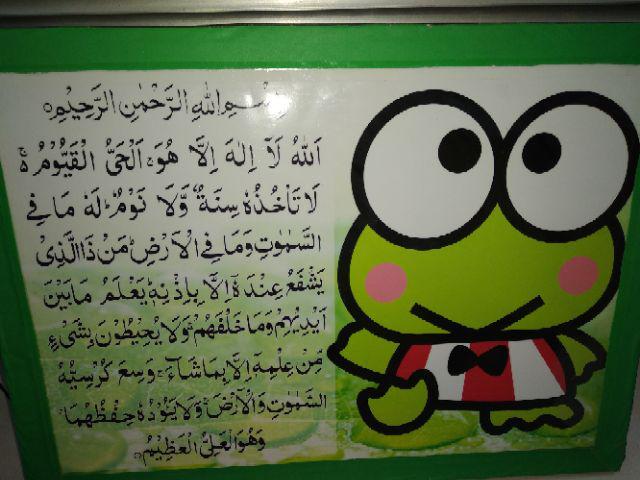 بِسْمِ اللهِ الرَّحْمٰنِ الرَّحِيْمِ
اَللهُ لَآ اِلٰهَ اِلَّا هُوَ ۚ اَلْحَيُّ الْقَيُّوْمُ ۚ
لَا تَأْخُذُهٗ سِنَةٌ وَّلَا نَوْمٌ ؕ لَهٗ مَا فِي
السَّمٰوٰتِ وَمَا فِي الْاَرْضِ ؕ مَنْ ذَا الَّذِيْ
يَشْفَعُ عِنْدَهٗٓ اِلَّا بِاِذْنِهٖ ؕ يَعْلَمُ مَا بَيْنَ
اَيْدِيْهِمْ وَمَا خَلْفَهُمْ ۚ وَلَا يُحِيْطُوْنَ بِشَيْءٍ
مِّنْ عِلْمِهٖٓ اِلَّا بِمَا شَآءَ ۚ وَسِعَ كُرْسِيُّهُ
السَّمٰوٰتِ وَالْاَرْضَ ۚ وَلَا يَئُوْدُهٗ حِفْظُهُمَا ۚ
وَهُوَ الْعَلِيُّ الْعَظِيْمُ